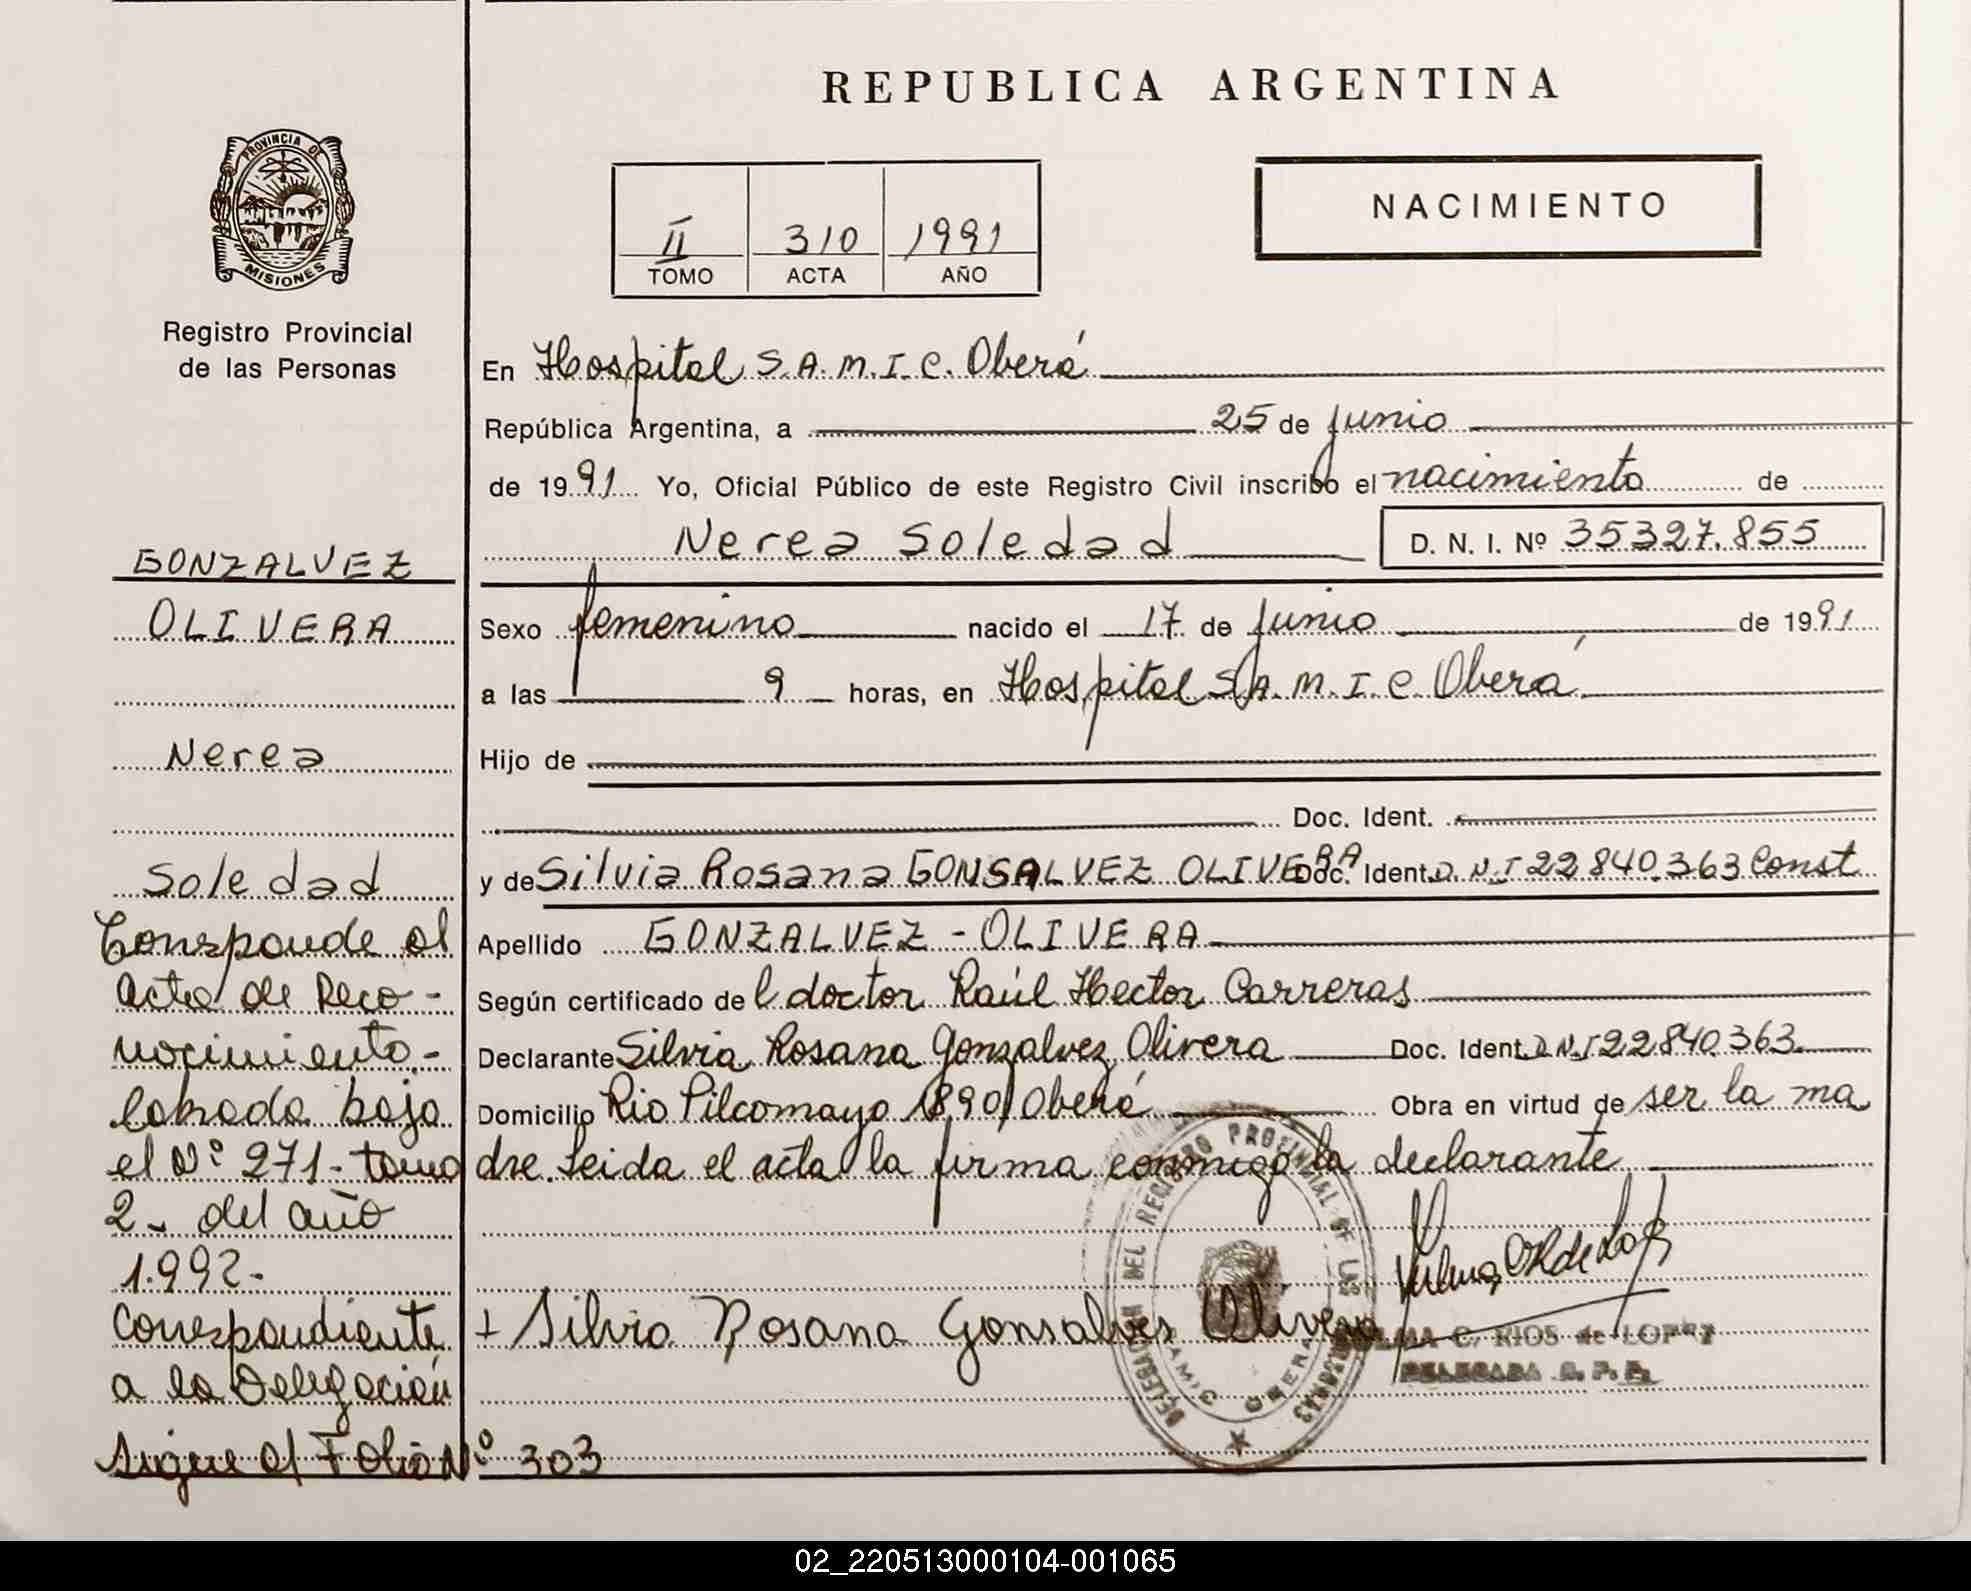 REPUBLICA ARGENTINA
PROVINCIA DE
MISIONES
Registro Provincial
de las Personas
II 310 1991
TOMO ACTA AÑO
NACIMIENTO
En Hospital S.A.M.I.C. Oberá
República Argentina, a 25 de junio
de 1991 Yo, Oficial Público de este Registro Civil inscribo el nacimiento de
Nerea Soledad D. N. I. Nº 35327.855
Sexo femenino nacido el 17 de junio de 1991
a las 9 horas, en Hospital S.A.M.I.C. Oberá
Hijo de
Doc. Ident.
y de Silvia Rosana GONSALVEZ OLIVERA Doc. Ident. D.N.I 22840.363 Const
Apellido GONZALVEZ - OLIVERA
Según certificado del doctor Raúl Hector Carreras
Declarante Silvia Rosana Gonzalvez Olivera Doc. Ident. D.N.I 22840.363
Domicilio Rio Pilcomayo 1890 Oberá Obra en virtud de ser la ma
dre. Leida el acta la firma conmigo la declarante
+ Silvia Rosana Gonsalves Olivera
C. RIOS de LOPEZ
DELEGADA R. P. P.
DELEGACION DEL REGISTRO PROVINCIAL DE LAS PERSONAS
SAMIC OBERA
GONZALVEZ
OLIVERA
Nerea
Soledad
Corresponde al
Acta de Reco-
nocimiento.-
labrada bajo
el Nº 271- tomo
2- del año
1.992-
Correspondiente
a la Delegación
Sigue al Folio Nº 303
02_220513000104-001065